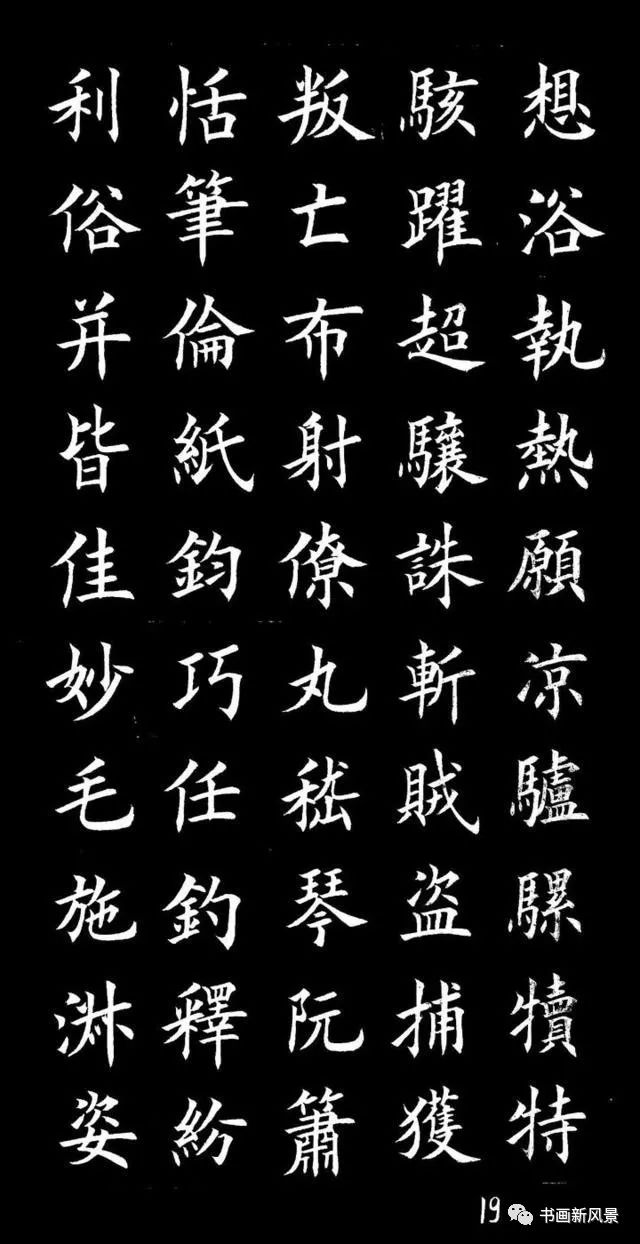 想浴執熱願凉驢騾犢特
駭躍超驤誅斬賊盜捕獲
叛亡布射僚丸嵇琴阮簫
恬筆倫紙鈞巧任釣釋紛
利俗并皆佳妙毛施淋姿
19 书画新风景